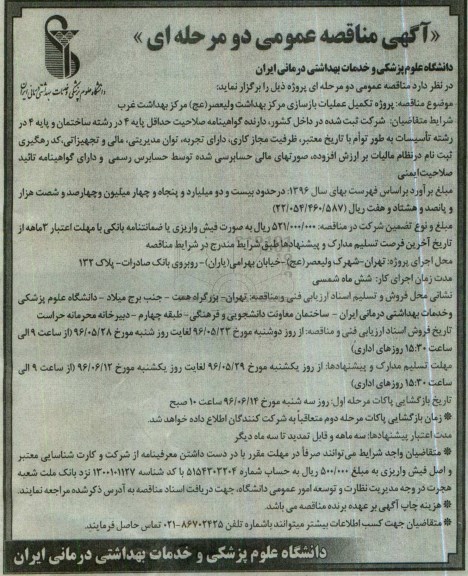 «آگهی مناقصه عمومی دو مرحله ای»
دانشگاه علوم پزشکی و خدمات بهداشتی درمانی ایران
دانشگاه علوم پزشکی و خدمات بهداشتی درمانی ایران
در نظر دارد مناقصه عمومی دو مرحله ای پروژه ذیل را برگزار نماید:
موضوع مناقصه: پروژه تکمیل عملیات بازسازی مرکز بهداشت ولیعصر(عج) مرکز بهداشت غرب
شرایط متقاضیان: شرکت ثبت شده در داخل کشور، دارنده گواهینامه صلاحیت حداقل پایه ۴ در رشته ساختمان و پایه ۴ در
رشته تأسیسات به طور توأم با تاریخ معتبر، ظرفیت مجاز کاری، دارای تجربه، توان مدیریتی، مالی و تجهیزاتی، کد رهگیری
ثبت نام در نظام مالیات بر ارزش افزوده، صورتهای مالی حسابرسی شده توسط حسابرس رسمی و دارای گواهینامه تائید
صلاحیت ایمنی
مبلغ برآورد براساس فهرست بهای سال ۱۳۹۶: در حدود بیست و دو میلیارد و پنجاه و چهار میلیون وچهارصد و شصت هزار
و پانصد و هشتاد و هفت ریال (۲۲/۰۵۴/۴۶۰/۵۸۷)
مبلغ و نوع تضمین شرکت در مناقصه: ۵۲۱/۰۰۰/۰۰۰ ریال به صورت فیش واریزی یا ضمانتنامه بانکی با مهلت اعتبار ۳ماهه از
تاریخ آخرین فرصت تسلیم مدارک و پیشنهادها طبق شرایط مندرج در شرایط مناقصه
محل اجرای پروژه: تهران-شهرک ولیعصر(عج)-خیابان بهرامی(یاران)- روبروی بانک صادرات- پلاک ۱۳۲
مدت زمان اجرای کار: شش ماه شمسی
نشانی محل فروش و تسلیم اسناد ارزیابی فنی و مناقصه: تهران- بزرگراه همت - جنب برج میلاد - دانشگاه علوم پزشکی
وخدمات بهداشتی درمانی ایران - ساختمان معاونت دانشجویی و فرهنگی- طبقه چهارم - دبیرخانه محرمانه حراست
تاریخ فروش اسناد ارزیابی فنی و مناقصه: از روز دوشنبه مورخ ۹۶/۰۵/۲۳ لغایت روز شنبه مورخ ۹۶/۰۵/۲۸ (از ساعت ۹ الی
ساعت ۱۵:۳۰ روزهای اداری)
مهلت تسلیم مدارک و پیشنهادها: از روز یکشنبه مورخ ۹۶/۰۵/۲۹ لغایت روز یکشنبه مورخ ۹۶/۰۶/۱۲ (از ساعت ۹ الی
ساعت ۱۵:۳۰ روزهای اداری)
تاریخ بازگشایی پاکات مرحله اول: روز سه شنبه مورخ ۹۶/۰۶/۱۴ ساعت ۱۰ صبح
* زمان بازگشایی پاکات مرحله دوم متعاقباً به شرکت کنندگان اطلاع داده خواهد شد.
مدت اعتبار پیشنهادها: سه ماهه و قابل تمدید تا سه ماه دیگر
* متقاضیان واجد شرایط می توانند صرفاً در مهلت مقرر با در دست داشتن معرفینامه از شرکت و کارت شناسایی معتبر
و اصل فیش واریزی به مبلغ ۵۰۰/۰۰۰ ریال به حساب شماره ۵۱۵۴۳۰۳۲۰۴ با کد شناسه ۱۳۰۰۱۰۱۱۲۷ نزد بانک ملت شعبه
هجرت در وجه مدیریت نظارت و توسعه امور عمومی دانشگاه، جهت دریافت اسناد مناقصه به آدرس ذکر شده مراجعه نمایند.
* هزینه چاپ آگهی بر عهده برنده مناقصه می باشد.
* متقاضیان جهت کسب اطلاعات بیشتر میتوانند باشماره تلفن ۸۶۷۰۲۴۲۵-۰۲۱ تماس حاصل فرمایند.
دانشگاه علوم پزشکی و خدمات بهداشتی درمانی ایران